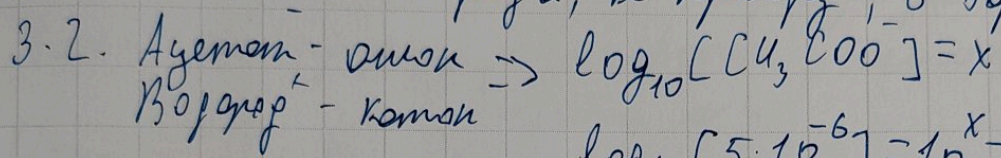 3.2. Ацетат - анион => log₁₀[CH₃COO⁻] = x
Водород⁺ - катион
[5·10⁻⁶] - 10ˣ